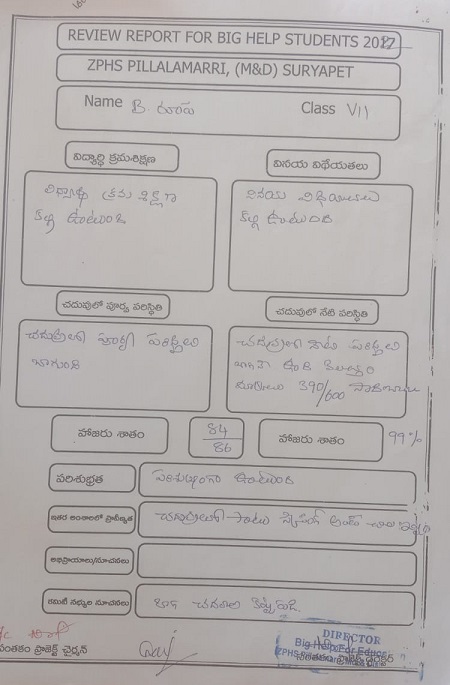 REVIEW REPORT FOR BIG HELP STUDENTS 20
ZPHS PILLALAMARRI, (M&D) SURYAPET
Name B. రూప Class VII
విద్యార్థి క్రమశిక్షణ
వినయ విధేయతలు
విద్యార్థి క్రమ
కల్గి ఉంటుంది
వినయ విధేయతలు
కల్గి ఉంటుంది
చదువులో పూర్వ పరిస్థితి
చదువులో నేటి పరిస్థితి
చదువులో పూర్వ పరిస్థితి
బాగుంది
చదువులో నేటి పరిస్థితి
ఉంది
మార్కులు 390/600
హాజరు శాతం
84/86
హాజరు శాతం
99%
పరిశుభ్రత
పరిశుభ్రంగా ఉంటుంది
ఇతర అంశాలలో ప్రావీణ్యత
చదువులతో పాటు అంటే చాలా
అభిప్రాయాలు/సూచనలు
కమిటీ సభ్యుల సూచనలు
బాగా చదవాలి
సంతకం ప్రాజెక్ట్ చైర్మన్
DIRECTOR
Big Help For Educ
సంతకం ప్రాజెక్ట్ డైరెక్టర్